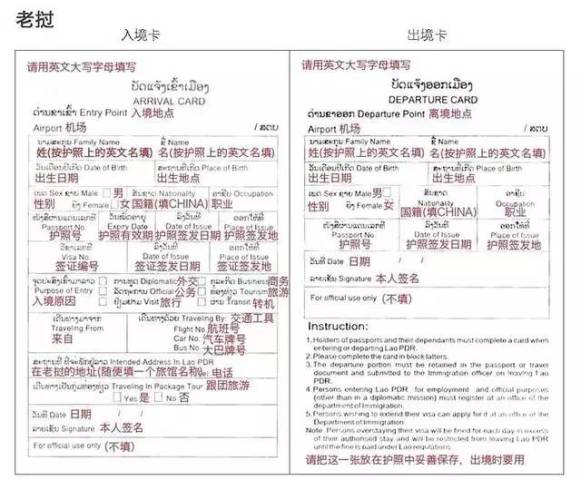 老挝
入境卡
请用英文大写字母填写
ບັດແຈ້ງເຂົ້າເມືອງ
ARRIVAL CARD
ດ່ານຂາເຂົ້າ Entry Point 入境地点
Airport 机场 / ສດບ
ນາມສະກຸນ Family Name ຊື່ Name
姓(按护照上的英文名填) 名(按护照上的英文名填)
ວັນເດືອນປີເກີດ Date of Birth ສະຖານທີ່ເກີດ Place of Birth
出生日期 出生地点
ເພດ Sex ຊາຍ Male 男 ສັນຊາດ Nationality ອາຊີບ Occupation
性别 ຍິງ Female 女 国籍(填CHINA) 职业
Passport No. Expiry Date Date of Issue Place of Issue
护照号 护照有效期 护照签发日期 护照签发地
Visa No Date of Issue Place of Issue
签证编号 签证签发日期 签证签发地
ການທູດ Diplomatic 外交 Business 商务
Purpose of Entry Official 公务 Tourism 旅游
入境原因 Visit 旅行 Transit 转机
Traveling By: 交通工具
Traveling From Flight No. 航班号
来自 Car No. 汽车牌号
Bus No. 大巴牌号
Intended Address In Lao PDR
在老挝的地址(随便填一个旅馆名称) 电话
Traveling In Package Tour 跟团旅游
Yes 是 No 否
ວັນທີ Date 日期 / /
ລາຍເຊັນ Signature 本人签名
For official use only (不填)
出境卡
请用英文大写字母填写
ບັດແຈ້ງອອກເມືອງ
DEPARTURE CARD
ດ່ານຂາອອກ Departure Point 离境地点
Airport 机场 / ສດບ
ນາມສະກຸນ Family Name ຊື່ Name
姓(按护照上的英文名填) 名(按护照上的英文名填)
ວັນເດືອນປີເກີດ Date of Birth ສະຖານທີ່ເກີດ Place of Birth
出生日期 出生地点
ເພດ Sex ຊາຍ Male 男 ສັນຊາດ Nationality ອາຊີບ Occupation
性别 ຍິງ Female 女 国籍(填CHINA) 职业
Passport No. Date of Issue Place of Issue
护照号 护照签发日期 护照签发地
ວັນທີ Date 日期 / /
ລາຍເຊັນ Signature 本人签名
For official use only (不填)
Instruction:
1. Holders of passports and their dependants must complete a card when
entering or departing Lao PDR.
2. Please complete the card in block latters.
3. The departure portion must be retained in the passport or travel
document and submitted to the Immigration officer on leaving Lao
PDR.
4. Persons entering Lao PDR for employment and official purposes
(other than in a diplomatic mission) must register at an office of the
department of Immigration.
5. Persons wishing to extend their visa can apply for it at an office of the
Department of Immigration.
Note: Persons overstaying their visa will be fined for each day in excess
of their authorised stay, and will be restricted from leaving Lao PDR
until the fine is paid under Lao regulations.
请把这一张放在护照中妥善保存，出境时要用